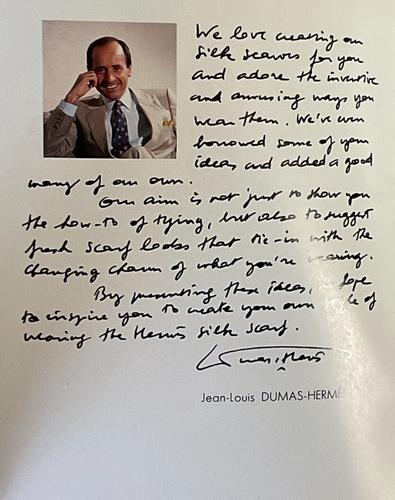 We love creating our
silk scarves for you
and adore the inventive
and amusing ways you
wear them. We've even
borrowed some of your
ideas and added a good
many of our own.
Our aim is not just to show you
the how-to of tying, but also to suggest
fresh scarf looks that tie-in with the
changing charm of what you're wearing.
By presenting these ideas, hope
to inspire you to create your own style of
wearing the Hermès silk scarf.
Jean-Louis DUMAS-HERMÈ